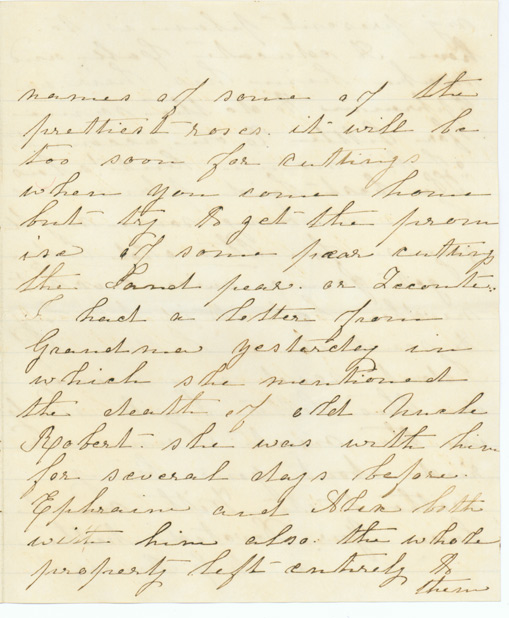 names of some of the
prettiest roses. it will be
too soon for cuttings
when you come home
but try to get the prom
ise of some pear cutting
the Sand pear. or Leconte.
I had a letter from
Grandma yesterday in
which she mentioned
the death of old Uncle
Robert. she was with him
for several days before.
Ephraim and Alex both
with him also. the whole
property left entirely to
them